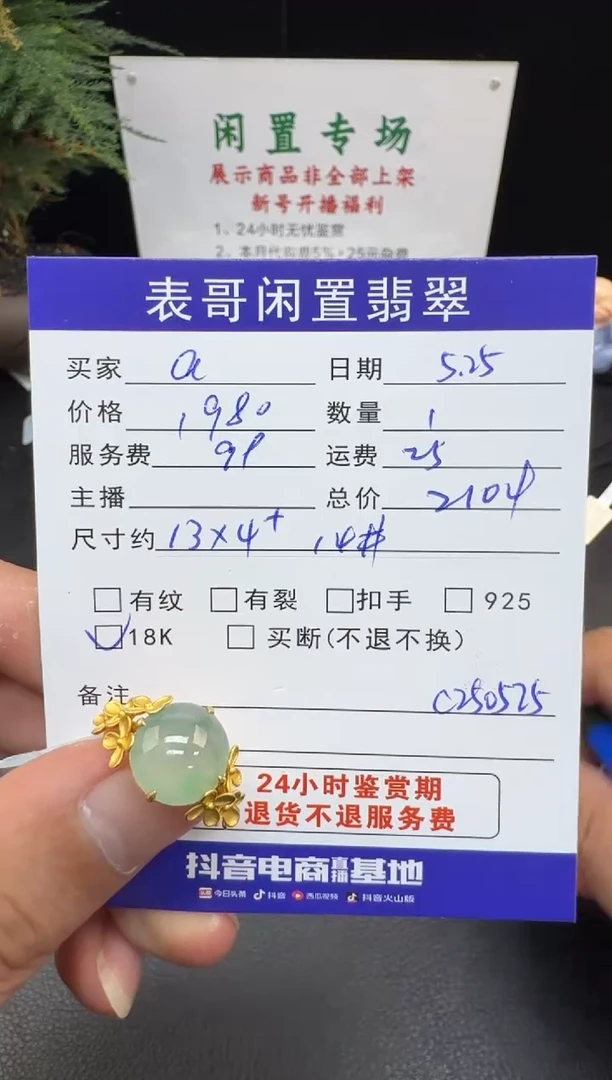 闲置专场
展示商品非全部上架
新号开播福利
1、24小时无忧鉴赏
2、本月代购费5%+25元杂费
表哥闲置翡翠
买家 a 日期 5.25
价格 1980 数量 1
服务费 99 运费 25
主播 总价 2104
尺寸约 13×4+ 14#
有纹 有裂 扣手 925
18K 买断(不退不换)
备注 C250525
24小时鉴赏期
退货不退服务费
抖音电商直播基地
今日头条 抖音 西瓜视频 抖音火山版